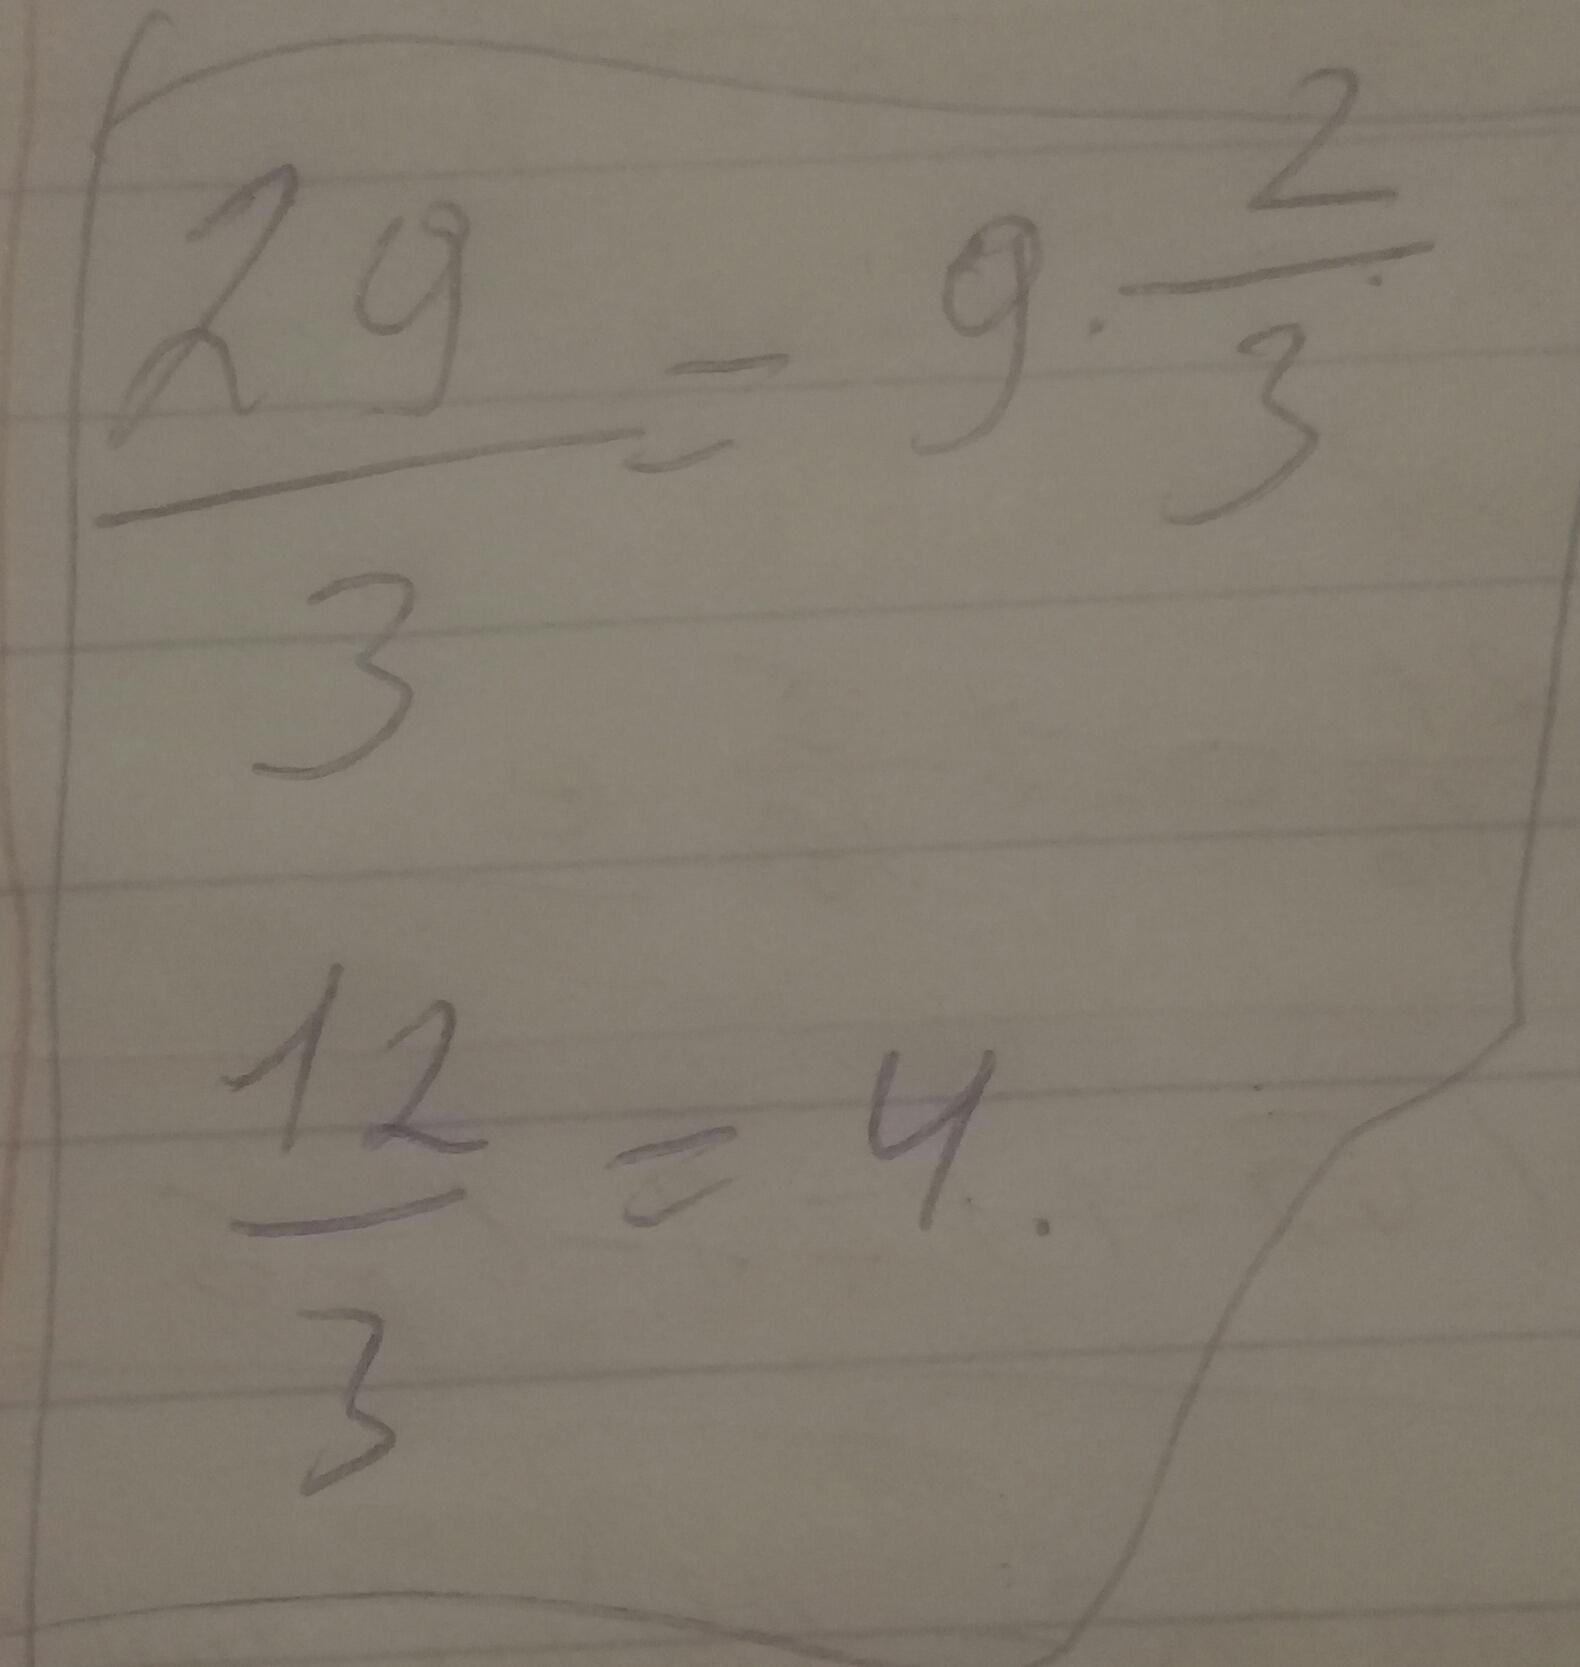 29/3 = 9. 2/3
12/3 = 4.